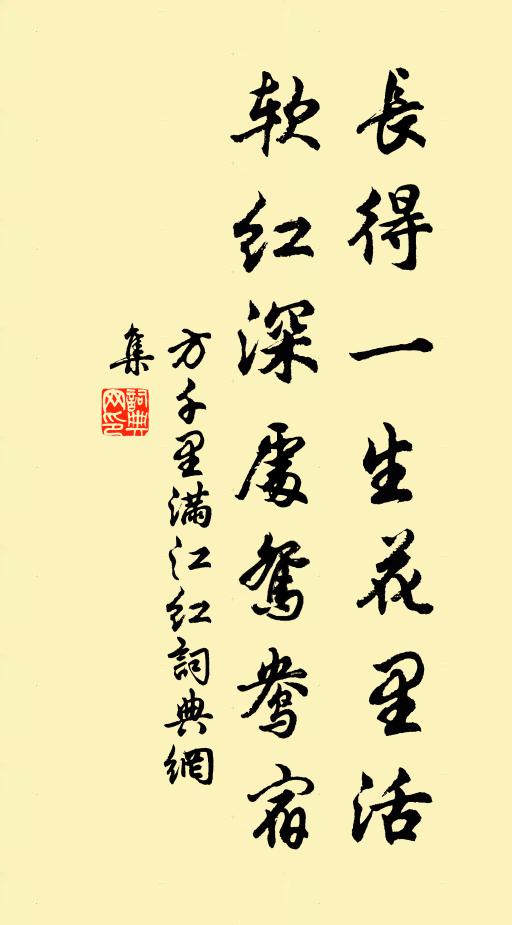 長得一生花里活
軟紅深處鴛鴦宿
方千里滿江紅詞典網
集
詞典网印